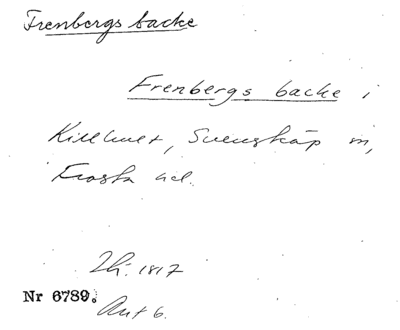 Frenbergs backe
Frenbergs backe i
Killhult, Svensköp sn,
Frosta hd.
Lh. 1817
Nr 6789.
Akt 6.